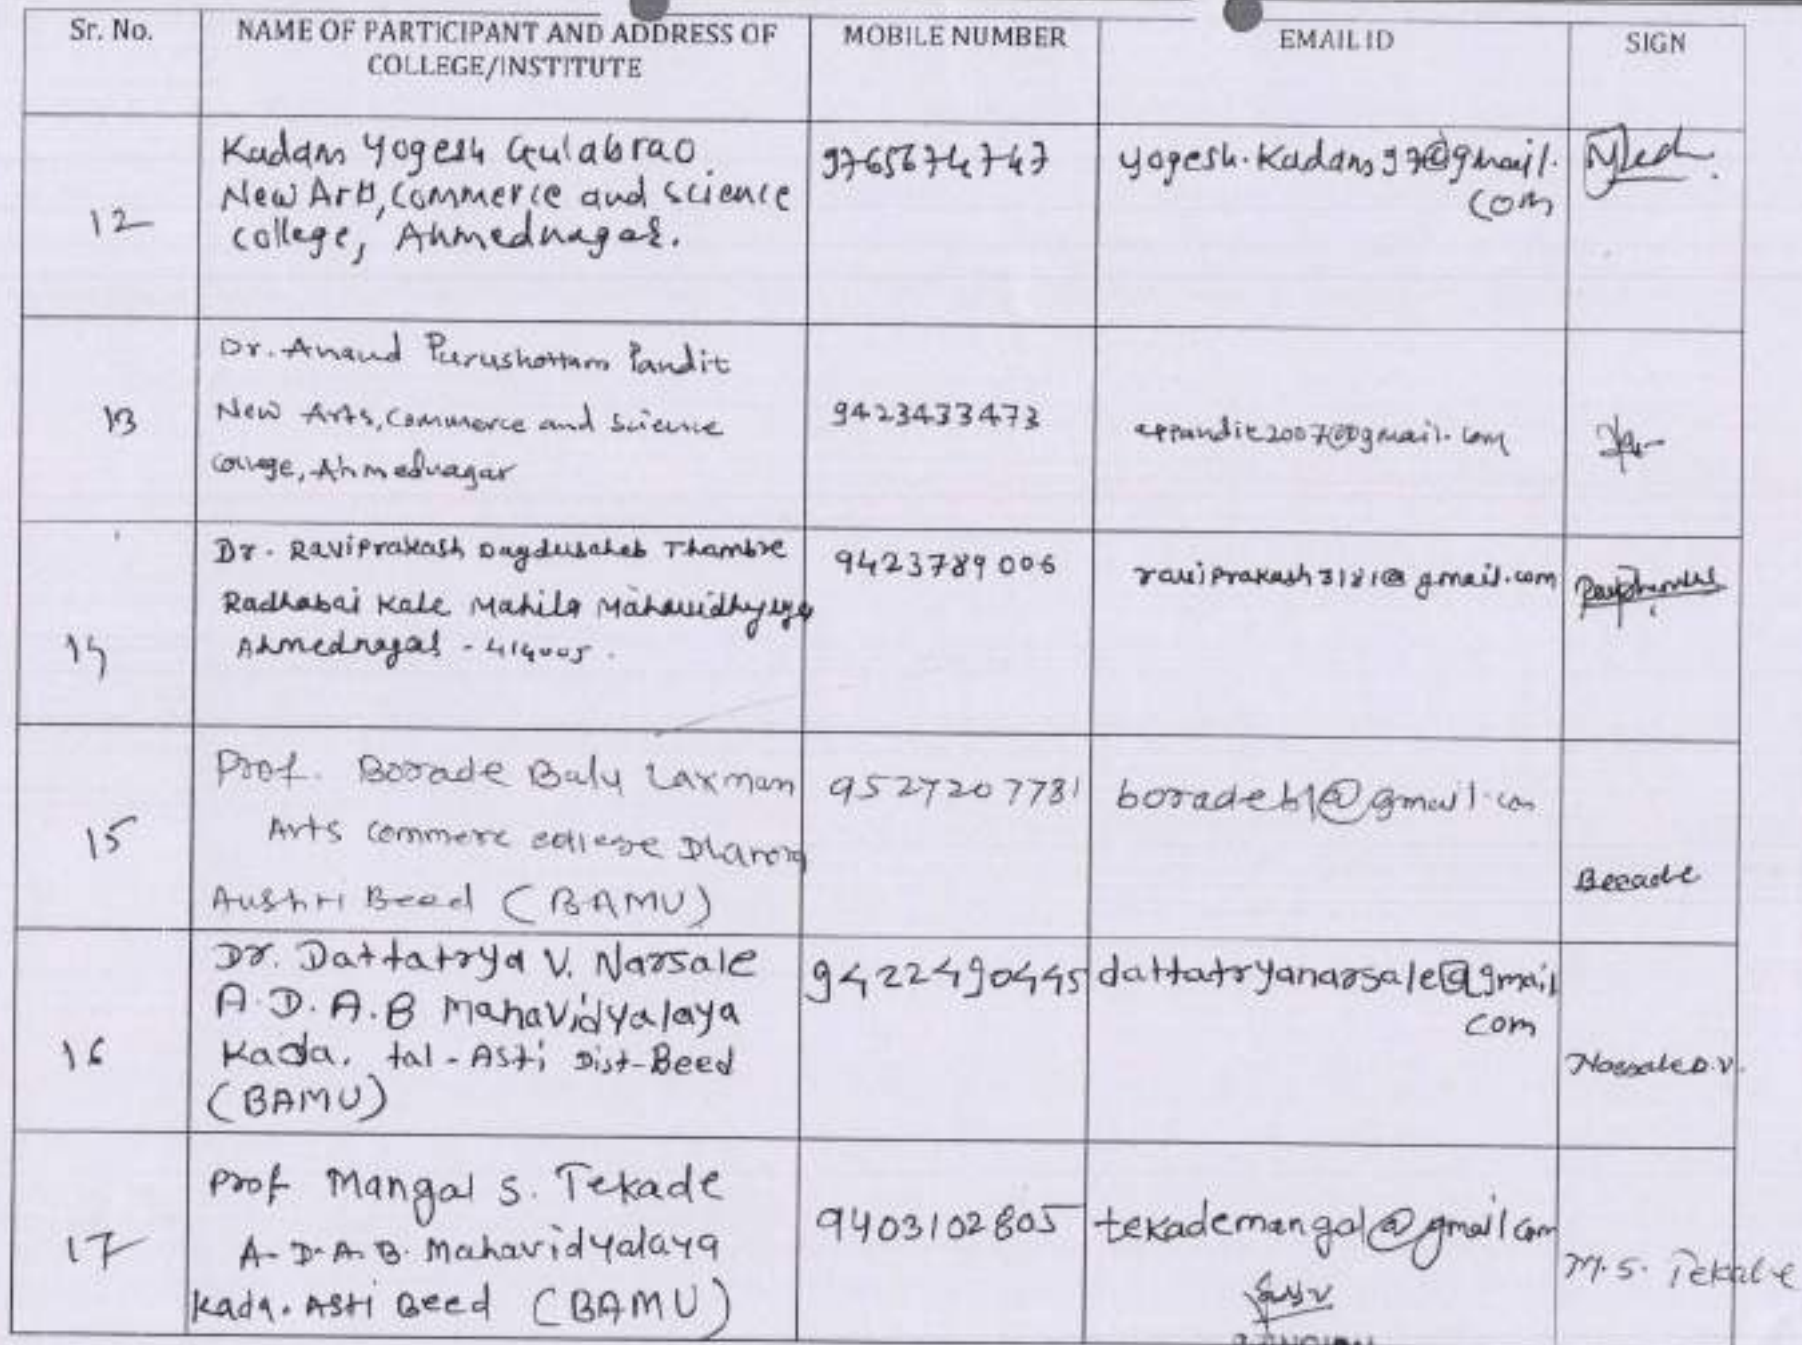 Sr. No.
NAME OF PARTICIPANT AND ADDRESS OF
COLLEGE/INSTITUTE
MOBILE NUMBER
EMAIL ID
SIGN
12
Kadam Yogesh Gulabrao
New Arts, Commerce and Science
College, Ahmednagar.
9765674747
yogesh.kadam97@gmail.
com
13
Dr. Anand Purushottam Pandit
New Arts, Commerce and Science
College, Ahmednagar
9423433473
appandit2007@gmail.com
14
Dr. Raviprakash Dagdusaheb Thambre
Radhabai Kale Mahila Mahavidhyalya
Ahmednagar - 414005.
9423789006
raviprakash3181@gmail.com
15
Prof. Borade Balu Laxman
Arts commerc college
Beed (BAMU)
9527207781
boradebl@gmail.com
Borade
16
Dr. Dattatrya V. Narsale
A.D.A.B Mahavidyalaya
Kada. tal-Asti Dist-Beed
(BAMU)
9422490445
dattatryanarsale@gmail
com
Narsale D.V.
17
Prof Mangal S. Tekade
A.D.A.B. Mahavidyalaya
Kada. Asti Beed (BAMU)
9403102805
tekademangal@gmail com
M.S. Tekade